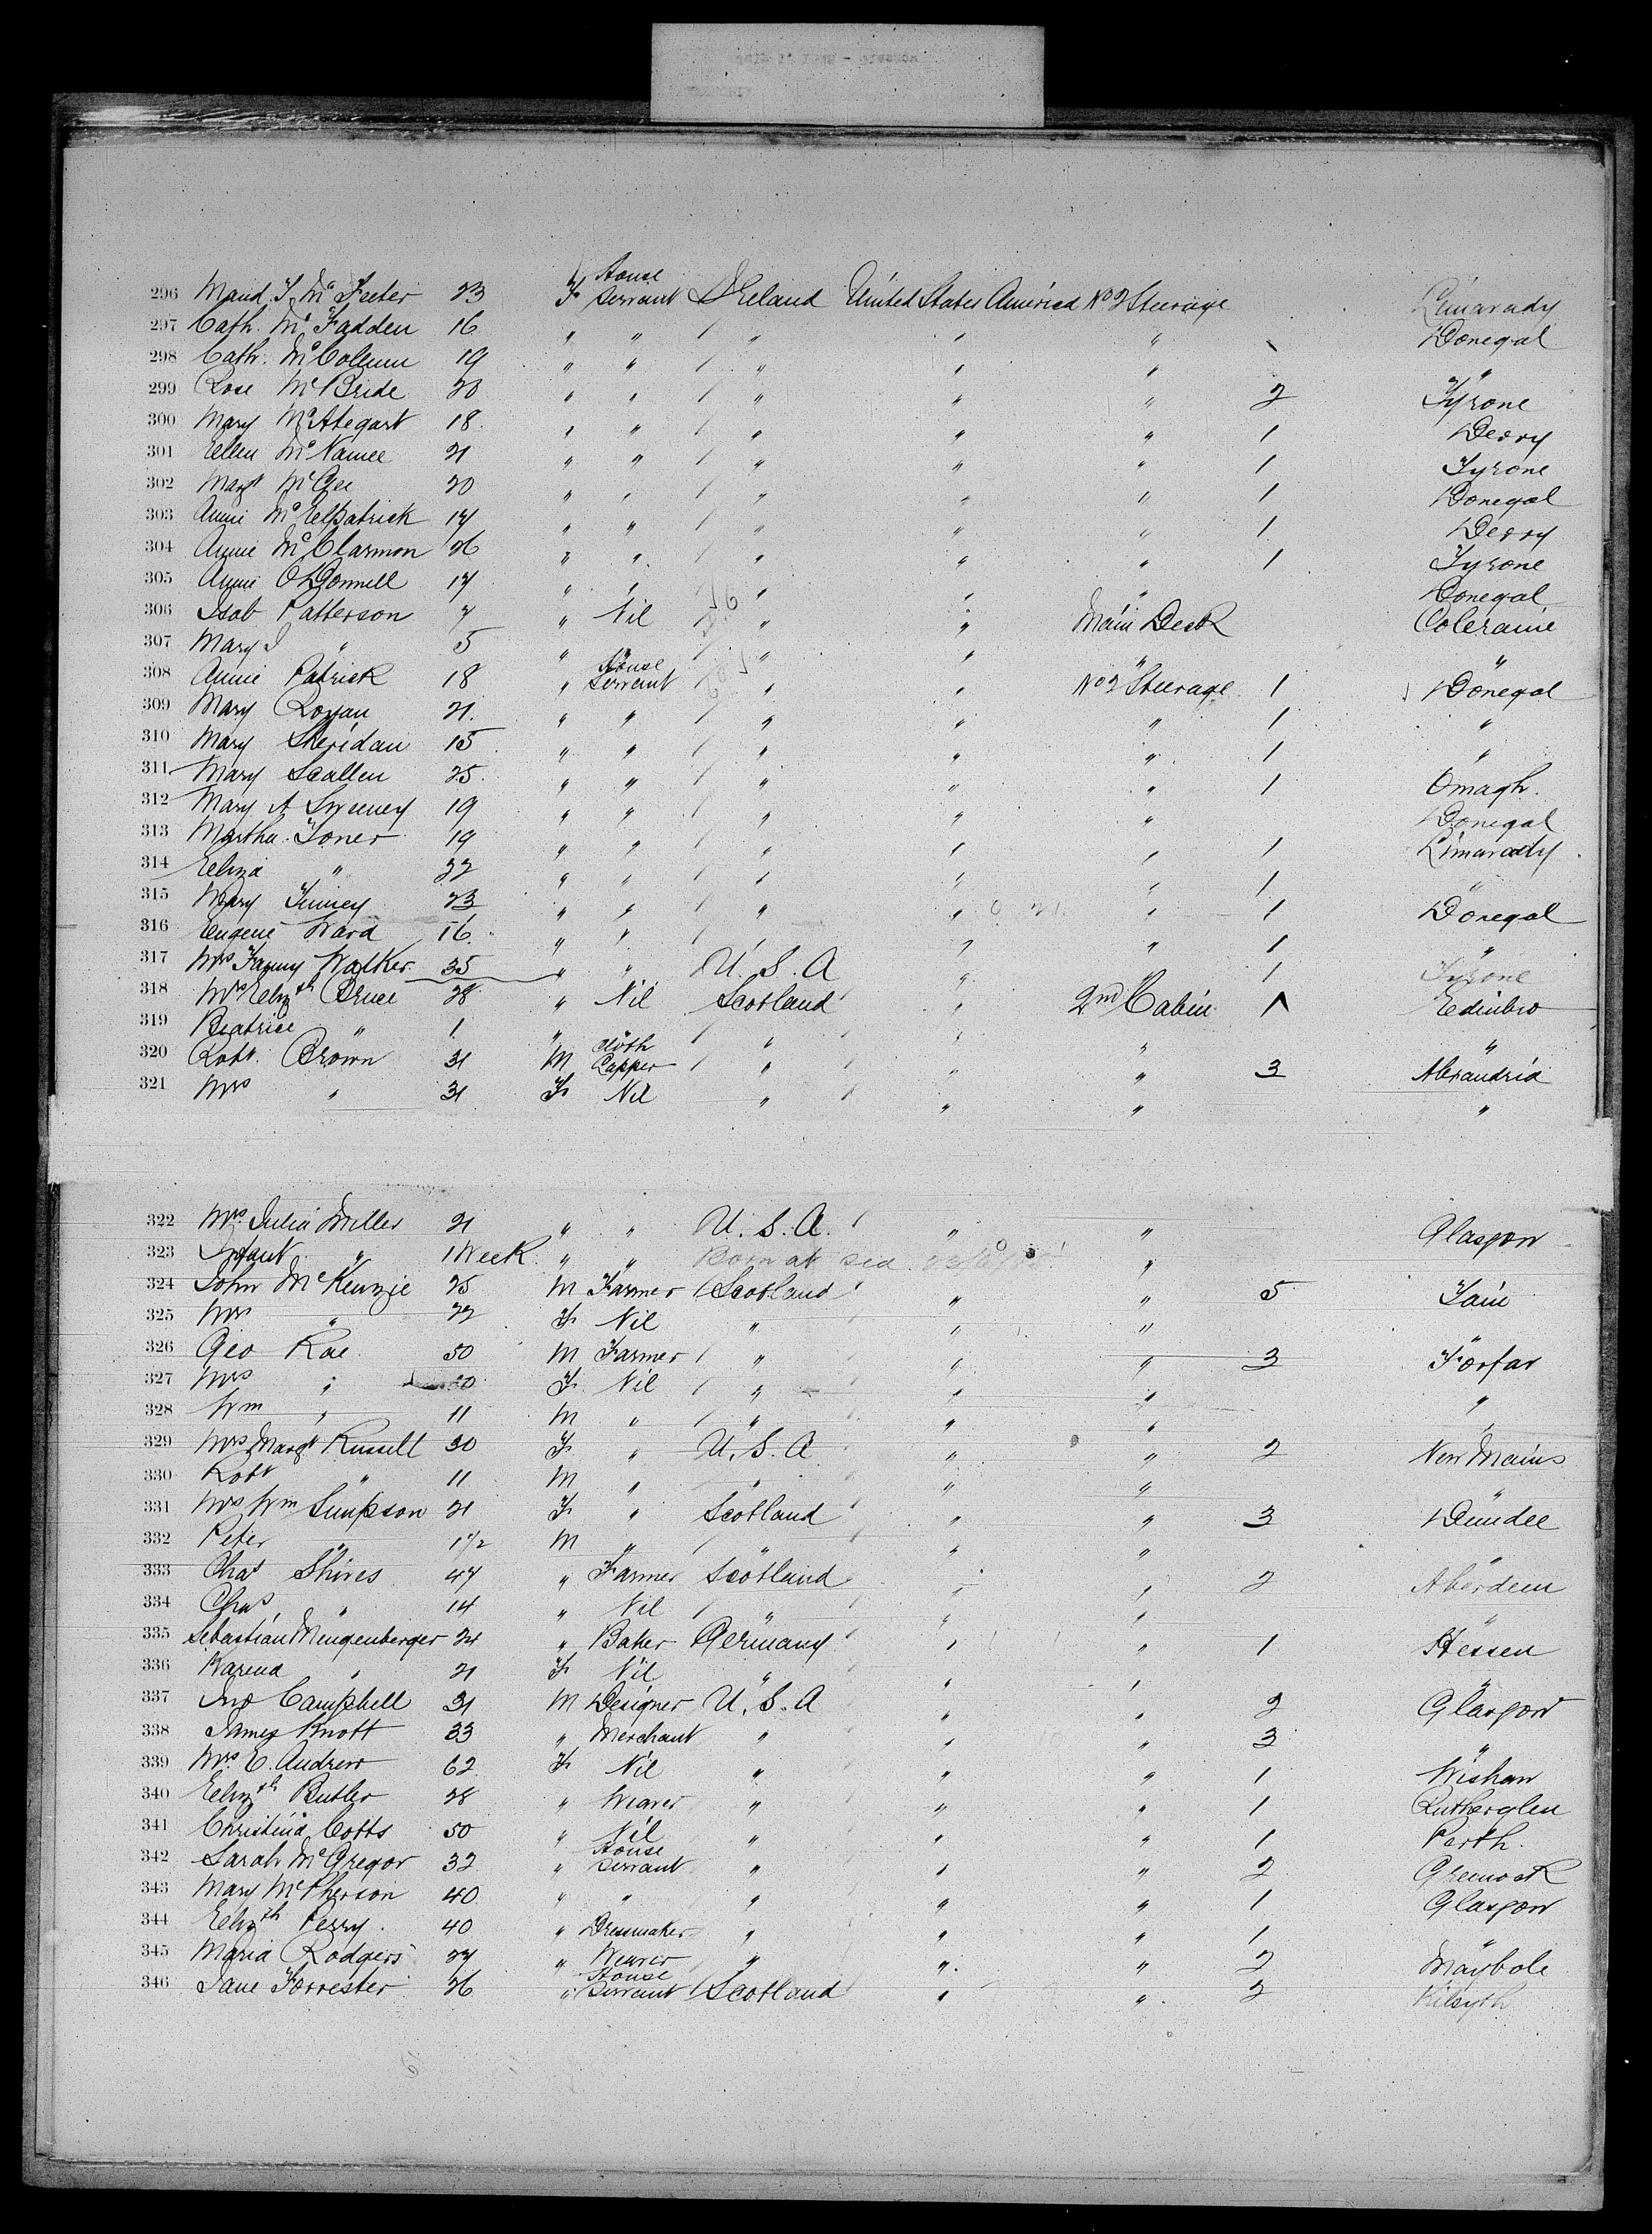 296 Maud. J. McFeeter 23 F House Servant Ireland United States America No 2 Steerage Limavady
297 Cath. McFadden 16 " " / " " " Donegal
298 Cath. McColeum 19 " " / " " " "
299 Rose McBride 20 " " / " " " 2 Tyrone
300 Mary McAtegart 18 " " / " " " 1 Derry
301 Ellen McNamee 21 " " / " " " 1 Tyrone
302 Margt McGee 20 " " / " " " 1 Donegal
303 Annie McElpatrick 17 " " / " " " 1 Derry
304 Annie McClarmon 26 " " / " " " 1 Tyrone
305 Annie O'Donnell 17 " " / " " " Donegal
306 Isab Patterson 7 " Nil / " " Main Deck Coleraine
307 Mary J " 5 " " / " " " "
308 Annie Patrick 18 " House Servant / " " No 2 Steerage 1 Donegal
309 Mary Rogan 21 " " / " " " 1 "
310 Mary Sheridan 15 " " / " " " 1 "
311 Mary Scallen 25 " " / " " " 1 Omagh
312 Mary A Sweeney 19 " " / " " " Donegal
313 Martha Toner 19 " " / " " " 1 Limavady
314 Eliza " 22 " " / " " " 1 "
315 Mary Tunney 23 " " / " " " 1 Donegal
316 Eugene Ward 16 " " / " " " 1 "
317 Mrs Fanny Walker 35 " " U.S.A " " 1 Tyrone
318 Mrs Elizth Bruce 28 " Nil Scotland " 2nd Cabin 1 Edinbro
319 Beatrice " 1 " " / " " " "
320 Robt. Brown 31 M Cloth Lapper / " " " 3 Alexandria
321 Mrs " 31 F Nil " " " "
322 Mrs Julia Miller 21 " " U.S.A. " " Glasgow
323 Infant " 1 Week " " Born at sea "
324 John McKenzie 25 M Farmer / Scotland " " 5 Tain
325 Mrs " 22 F Nil " " " "
326 Geo Rae 50 M Farmer / " " " 3 Forfar
327 Mrs " 50 F Nil / " " " "
328 Wm " 11 M " / " " " "
329 Mrs Margt Russell 30 F " U.S.A " " 2 New Mains
330 Robt " 11 M " " " " "
331 Mrs Wm Simpson 21 F " Scotland " " 3 Dundee
332 Peter " 1 1/2 M " / " " " "
333 Chas Shires 47 " Farmer Scotland " " 2 Aberdeen
334 Chas " 14 " Nil / " " " "
335 Sebastian Mengenberger 24 " Baker Germany " " 1 Hessen
336 Karena " 21 F Nil " " " "
337 Jno Campbell 31 M Designer U.S.A " " 2 Glasgow
338 James Knott 33 " Merchant " " " 3 "
339 Mrs E. Andrew 62 F Nil " " " 1 Wishaw
340 Elizth Butler 28 " Weaver " " " 1 Rutherglen
341 Christina Cotts 50 " Nil " " " 1 Perth
342 Sarah McGregor 32 " House Servant " " " 2 Greenock
343 Mary McPherson 40 " " " " " 1 Glasgow
344 Elizth Perry 40 " Dressmaker " " " 1 "
345 Maria Rodgers 27 " Weaver " " " 2 Maybole
346 Jane Forrester 26 " House Servant / Scotland " " 2 Kilsyth